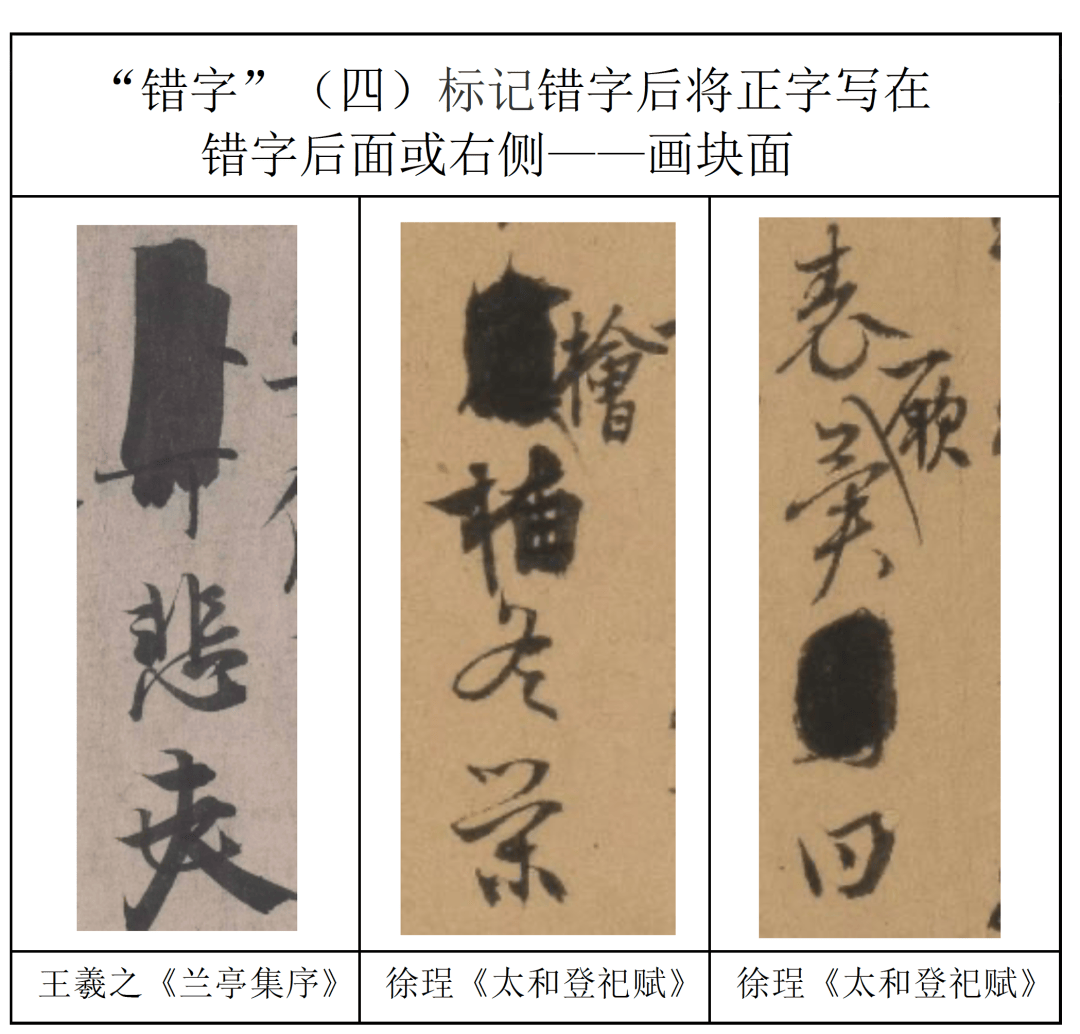 “错字”（四）标记错字后将正字写在
错字后面或右侧——画块面
悲
夫
檜
柚
冬
榮
表
厥
異
回
王羲之《兰亭集序》
徐珵《太和登祀赋》
徐珵《太和登祀赋》